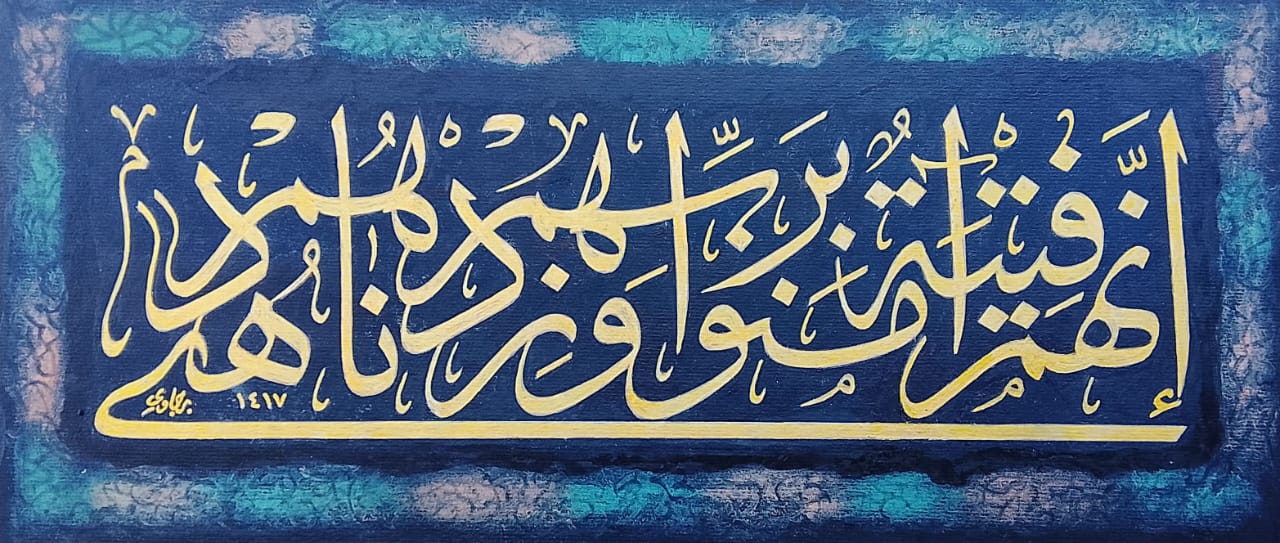 إِنَّهُمْ فِتْيَةٌ آمَنُوا بِرَبِّهِمْ وَزِدْنَاهُمْ هُدًى
١٤١٧